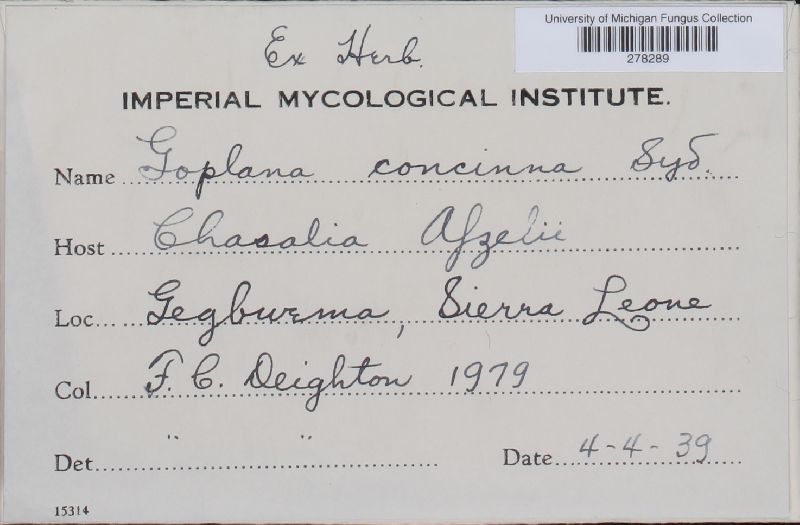 University of Michigan Fungus Collection
278289
Ex Herb.
IMPERIAL MYCOLOGICAL INSTITUTE.
Name Goplana concinna Syd.
Host Chasalia Afzelii
Loc. Gegbwema, Sierra Leone
Col. F. C. Deighton 1979
Det. " " Date 4-4-39
15314